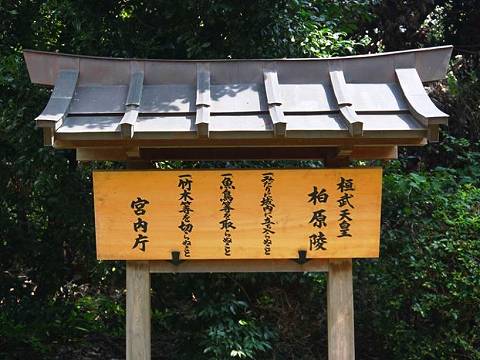 桓武天皇
柏原陵
一、みだりに域内に立ち入らぬこと
一、魚鳥等を取らぬこと
一、竹木等を切らぬこと
宮内庁